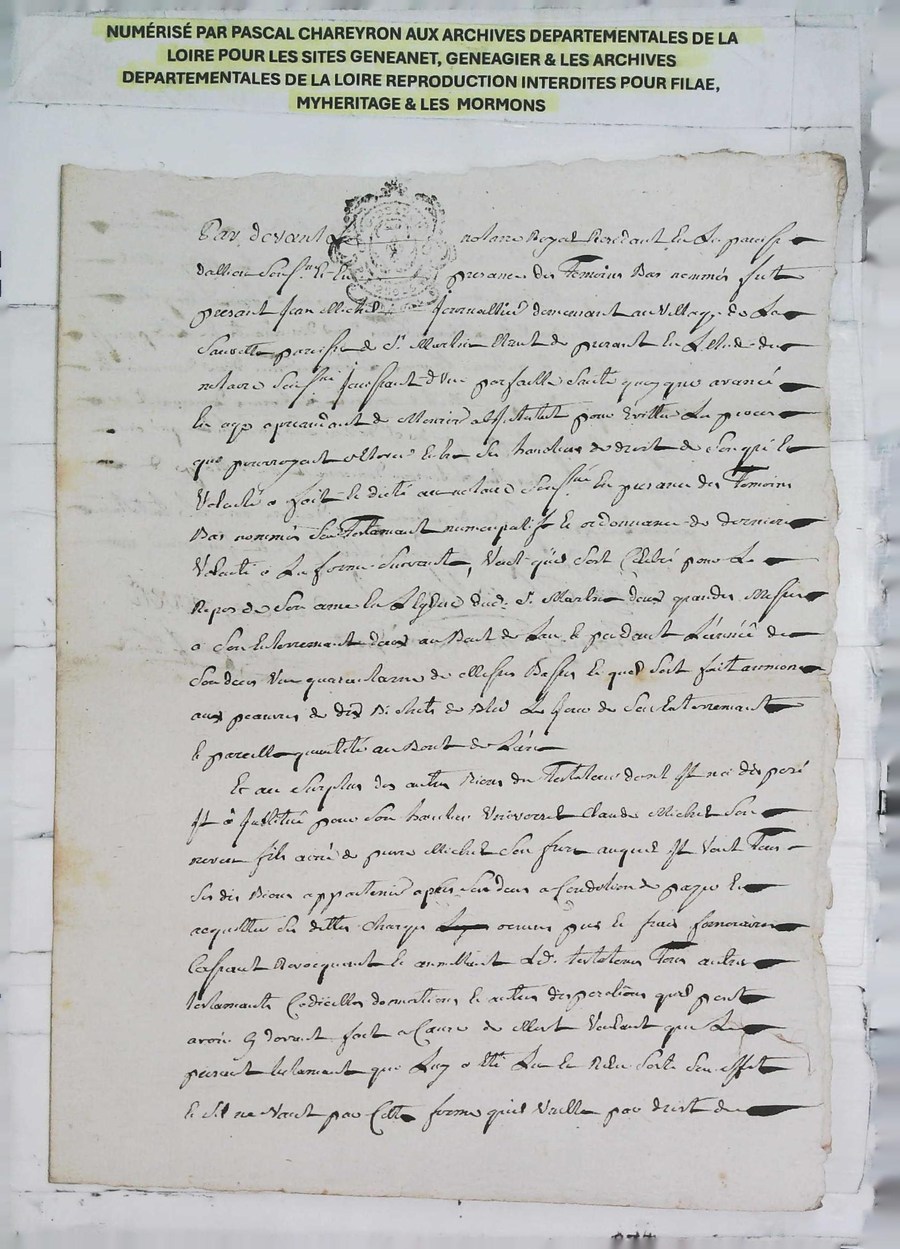 NUMÉRISÉ PAR PASCAL CHAREYRON AUX ARCHIVES DEPARTEMENTALES DE LA
LOIRE POUR LES SITES GENEANET, GENEAGIER & LES ARCHIVES
DEPARTEMENTALES DE LA LOIRE REPRODUCTION INTERDITES POUR FILAE,
MYHERITAGE & LES MORMONS
Par devant notaire Royal En La paroisse
presance des Temoins Bas nommés fut
presant Jean Michel Journallier demeurant au Village de La
Sauvette paroisse de St Martin Etant de presant En L'etude du
notaire soussné Jouissant d'une parfaitte santé quoyque avancé
En age de Mourir pour Evitter Les proces
que pourroyent Entre ses heritiers de droit de son gré Et
Volonté a fait Et dicté au notaire soussné En presance des Temoins
Bas nommés Son Testament Et ordonnance de derniere
Volonté a La forme suivante, Veut qu'il soit Celebré pour Le
Repos de Son ame En L'Eglise dud. St Martin deux grandes Messes
a Son Enterrement deux au Bout de L'an Et pendant L'année de
Son deces Une quarantaine de Messes Basses Et que soit fait aumone
aux peauvres de dix Bichets de Bled Le Jour de Son Enterrement
Et pareille quantité au Bout de L'an
Et au Surplus des autres Biens du Testateur dont Il n'a disposé
Il a Institué pour Son heritier Universel Claude Michel Son
neveu fils ainé de pierre Michel Son frere auquel Il Veut Tous
Ses dis Biens appartenir après Son deces a Condition de payer Et
acquitter Ses dittes charges Et frais
Cassant Revocquant Et annullant Led. testateur Tous autres
testaments Codicilles donnations Et autres dispositions qu'il peut
avoir Cy devant fait a Cause de Mort Voulant que Le
presant testament que Luy a été Lu Et Relu Sorte Son Effet
Et S'il ne Vaut par Cette forme qu'il Vaille par droit de